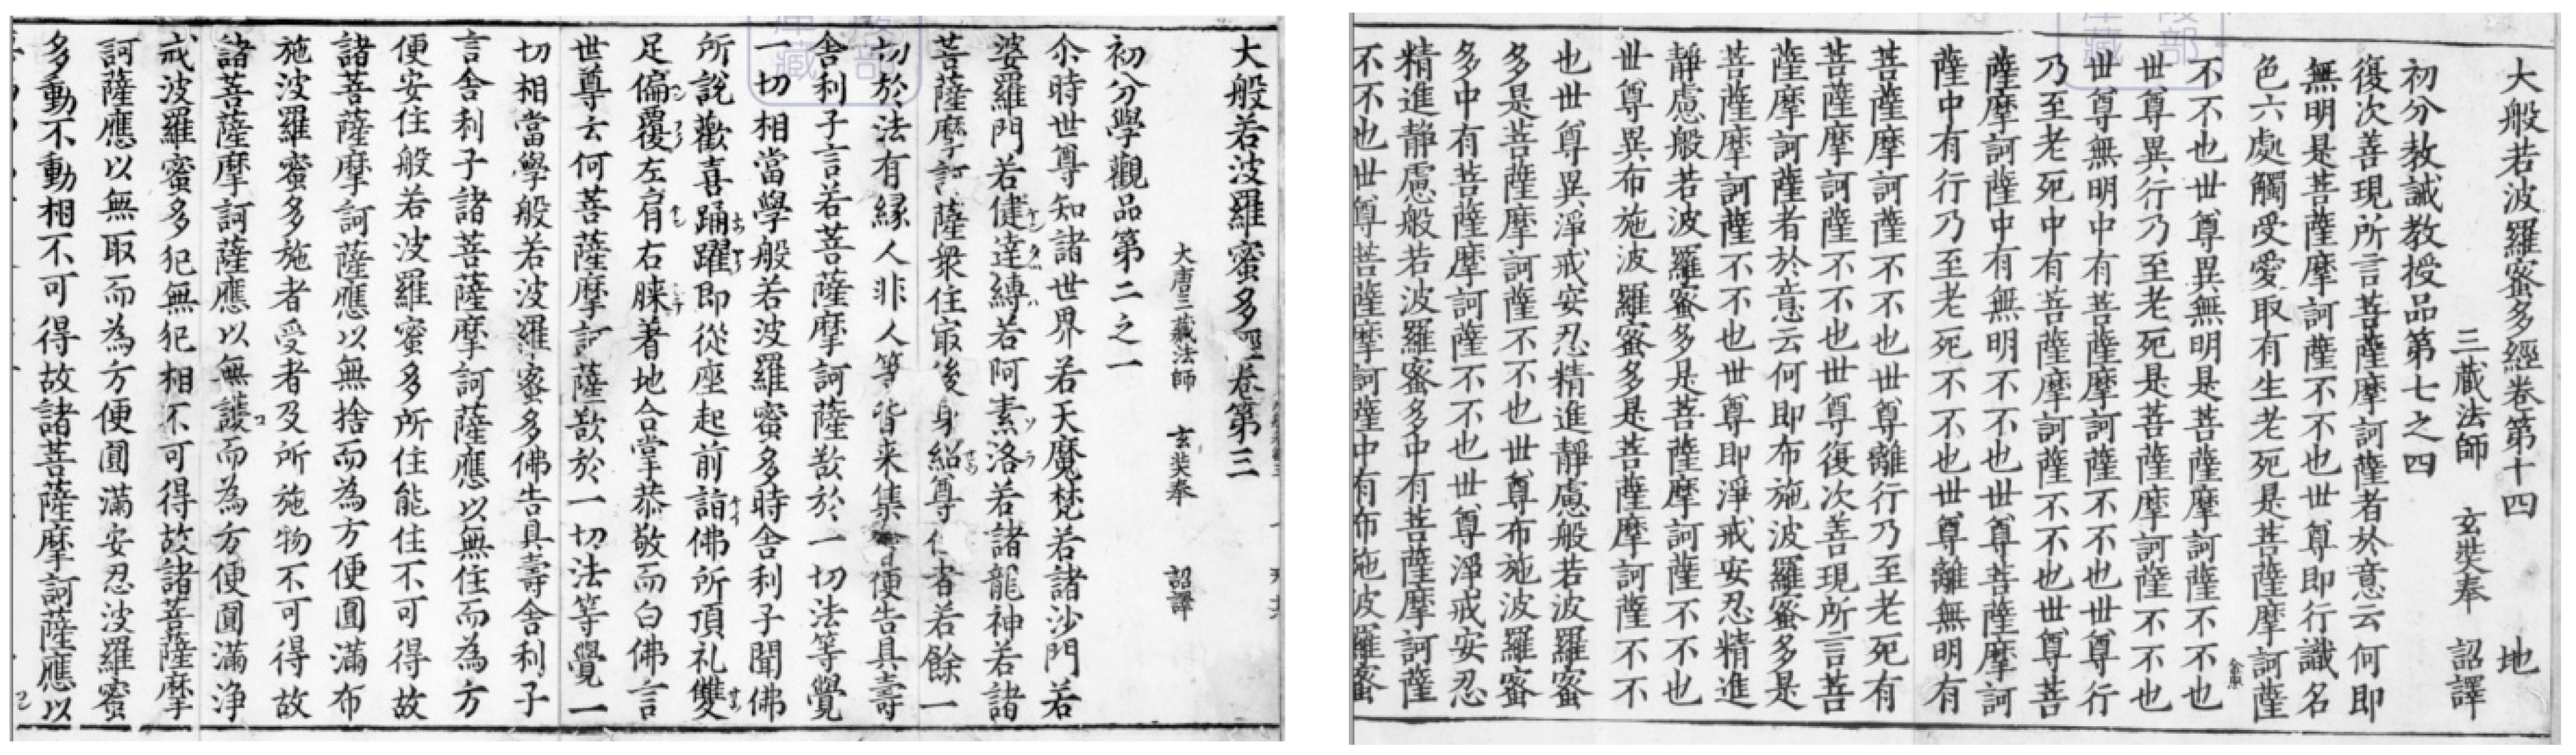 大般若波羅蜜多經卷第三
大唐三藏法師 玄奘奉 詔譯
初分學觀品第二之一
尒時世尊知諸世界若天魔梵若諸沙門若
婆羅門若健達縛若阿素洛若諸龍神若諸
菩薩摩訶薩衆住㝡後身紹尊位者若餘一
切於法有緣人非人等皆来集會便告具壽
舍利子言若菩薩摩訶薩欲於一切法等覺
一切相當學般若波羅蜜多時舍利子聞佛
所說歡喜踊躍即從座起前詣佛所頂礼雙
足偏覆左肩右膝著地合掌恭敬而白佛言
世尊云何菩薩摩訶薩欲於一切法等覺一
切相當學般若波羅蜜多佛告具壽舍利子
言舍利子諸菩薩摩訶薩應以無住而為方
便安住般若波羅蜜多所住能住不可得故
諸菩薩摩訶薩應以無捨而為方便圓滿布
施波羅蜜多施者受者及所施物不可得故
諸菩薩摩訶薩應以無護而為方便圓滿浄
戒波羅蜜多犯無犯相不可得故諸菩薩摩
訶薩應以無取而為方便圓滿安忍波羅蜜
多動不動相不可得故諸菩薩摩訶薩應以
大般若波羅蜜多經卷第十四 地
三藏法師 玄奘奉 詔譯
初分教誡教授品第七之四
復次善現所言菩薩摩訶薩者於意云何即
無明是菩薩摩訶薩不不也世尊即行識名
色六處觸受愛取有生老死是菩薩摩訶薩
不不也世尊異無明是菩薩摩訶薩不不也
世尊異行乃至老死是菩薩摩訶薩不不也
世尊無明中有菩薩摩訶薩不不也世尊行
乃至老死中有菩薩摩訶薩不不也世尊菩
薩摩訶薩中有無明不不也世尊菩薩摩訶
薩中有行乃至老死不不也世尊離無明有
菩薩摩訶薩不不也世尊離行乃至老死有
菩薩摩訶薩不不也世尊復次善現所言菩
薩摩訶薩者於意云何即布施波羅蜜多是
菩薩摩訶薩不不也世尊即淨戒安忍精進
靜慮般若波羅蜜多是菩薩摩訶薩不不也
世尊異布施波羅蜜多是菩薩摩訶薩不不
也世尊異淨戒安忍精進靜慮般若波羅蜜
多是菩薩摩訶薩不不也世尊布施波羅蜜
多中有菩薩摩訶薩不不也世尊淨戒安忍
精進靜慮般若波羅蜜多中有菩薩摩訶薩
不不也世尊菩薩摩訶薩中有布施波羅蜜